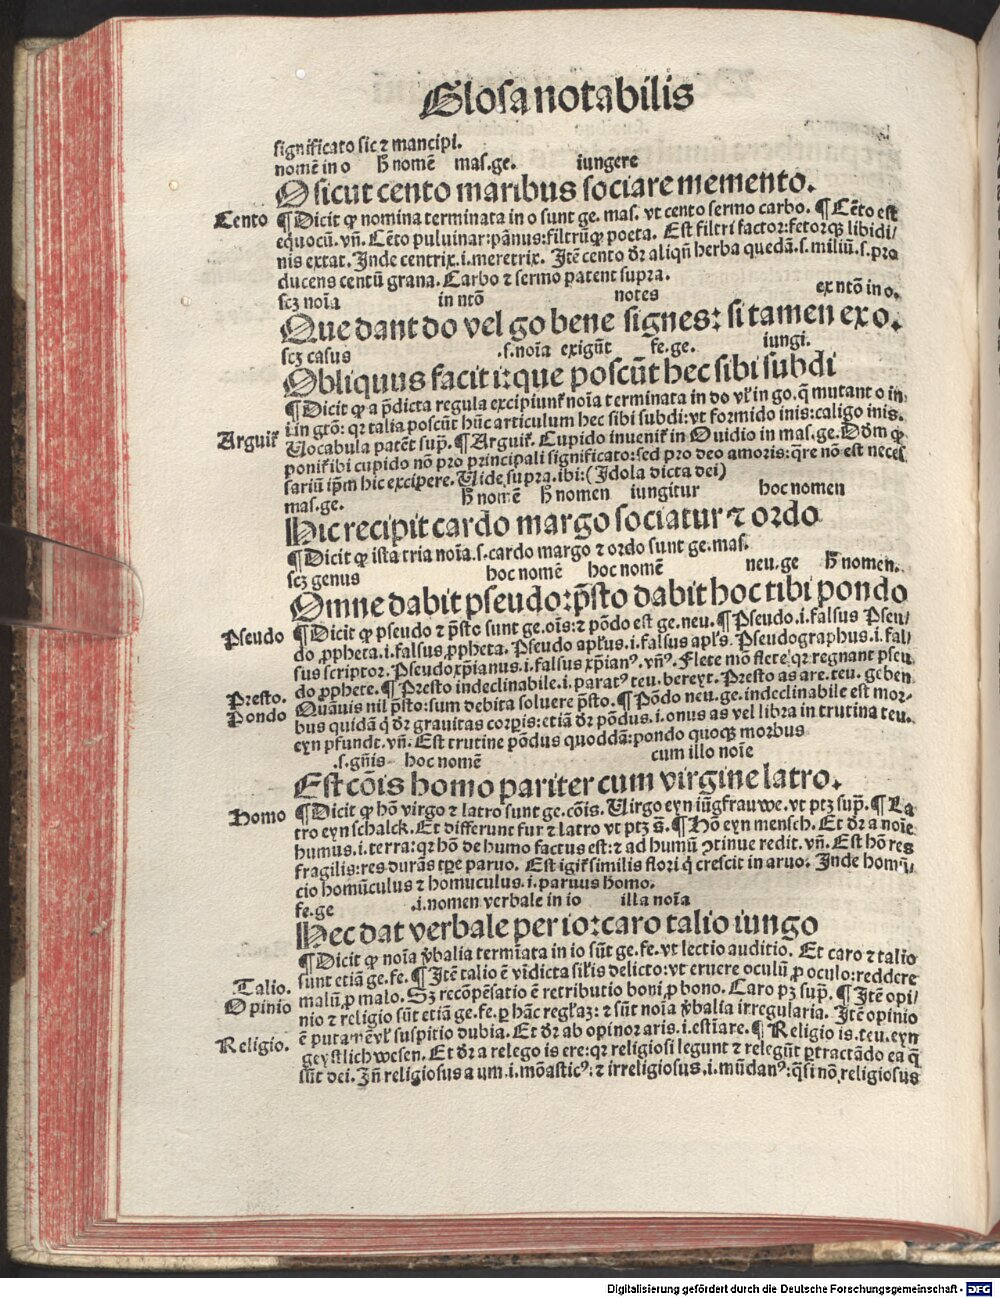 Glosa notabilis
significato sic ⁊ mancipi.
nomē in o ħ nomē mas.ge. iungere
O sicut cento maribus sociare memento.
Cento ¶Dicit ꝙ nomina terminata in o sunt ge. mas. vt cento sermo carbo. ¶Cēto est
eq̄uocū. vn̄. Cēto puluinar:pānus:filtrūq̄ poeta. Est filtri factor:fetorqꝫ libidi/
nis extat. Inde centrix.i.meretrix. Itē cento dr̄ aliqn̄ herba quedā.s.miliū.s.pro
ducens centū grana. Carbo ⁊ sermo patent supra.
scꝫ noīa in ntō notes ex ntō in o.
Que dant do vel go bene signes: si tamen ex o.
scꝫ casus .s.noīa exigūt fe.ge. iungi.
Obliquus facit i:que poscūt hec sibi subdi
¶Dicit ꝙ a p̄dicta regula excipiunt̄ noīa terminata in do vl̄ in go.q̄ mutant o in
i.in gtō: qꝛ talia poscūt hūc articulum hec sibi subdi:vt formido inis:caligo inis.
Vocabula patēt sup̄. ¶Arguit̄. Cupido inuenit̄ in Ouidio in mas.ge. Dōm ꝙ
Arguit̄
ponit̄ ibi cupido nō pro principali significato:sed pro deo amoris:qr̄e nō est neces
sariū ip̄m hic excipere. Vide supra.ibi:(Idola dicta dei)
mas.ge. ħ nomē ħ nomen iungitur hoc nomen
Hic recipit cardo margo sociatur ⁊ ordo
¶Dicit ꝙ ista tria noīa.s.cardo margo ⁊ ordo sunt ge.mas.
scꝫ genus hoc nomē hoc nomē neu.ge ħ nomen.
Omne dabit pseudo:p̄sto dabit hoc tibi pondo
Pseudo ¶Dicit ꝙ pseudo ⁊ p̄sto sunt ge.oīs:⁊ pōdo est ge.neu. ¶Pseudo.i.falsus Pseu/
do ꝓpheta.i.falsus ꝓpheta. Pseudo apl̄us.i.falsus apl̄s. Pseudographus.i.fal/
sus scriptor. Pseudoxp̄ianus.i.falsus xp̄ianꝰ. vn̄ꝰ. Flete mō flete qꝛ regnant pseu
do ꝓphete. ¶Presto indeclinabile.i.paratꝰ teu.bereyt. Presto as are.teu.geben
Presto.
Quāuis nil p̄sto:sum debita soluere p̄sto. ¶Pōdo neu.ge.indeclinabile est mor-
Pondo
bus quidā q̇ dr̄ grauitas corꝑis:etiā dr̄ pōdus.i.onus as vel libra in trutina teu.
eyn pfundt. vn̄. Est trutine pōdus quoddā:pondo quoqꝫ morbus
.s.gn̄is hoc nomē cum illo noīe
Est cōis homo pariter cum virgine latro.
Homo ¶Dicit ꝙ hō virgo ⁊ latro sunt ge.cōis. Virgo eyn iūgfrauwe.vt ptꝫ sup̄. ¶La
tro eyn schalck. Et differunt fur ⁊ latro vt ptꝫ s̄. ¶Hō eyn mensch. Et dr̄ a noīe
humus.i.terra:qꝛ hō de humo factus est:⁊ ad humū ↄtinue redit. vn̄. Est hō res
fragilis:res durās tꝑe paruo. Est igit̄ similis flori q̇ crescit in aruo. Inde homū/
cio homūculus ⁊ homuculus.i.paruus homo.
fe.ge .i.nomen verbale in io illa noīa
Hec dat verbale per io:caro talio iungo
¶Dicit ꝙ noīa v̄balia termīata in io sūt ge.fe.vt lectio auditio. Et caro ⁊ talio
sunt etiā ge.fe. ¶Itē talio ē vīdicta sil̄is delicto:vt eruere oculū ꝓ oculo:reddere
Talio. malū ꝓ malo. Sꝫ recōpēsatio ē retributio boni ꝓ bono. Caro pꝫ sup̄. ¶Itē opi/
Opinio nio ⁊ religio sūt etiā ge.fe.ꝑ hāc regl̄aꝫ:⁊ sūt noīa v̄balia irregularia. Itē opinio
ē putamē vl̄ suspitio dubia. Et dr̄ ab opinor aris.i.estīare. ¶Religio is.teu.eyn
Religio. geystlich wesen. Et dr̄ a relego is ere:qꝛ religiosi legunt ⁊ relegūt ꝑtractādo ea q̄
sūt dei. Jn̄ religiosus a um.i.mōasticꝰ:⁊ irreligiosus.i.mūdanꝰ:q̄si nō religiosus
Digitalisierung gefördert durch die Deutsche Forschungsgemeinschaft - DFG